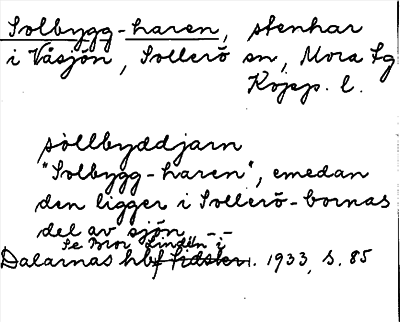 Solbygg-haren, stenhar
i Våsjön, Sollerö sn, Mora tg
Kopp. l.
söllbyddjarn
"Solbygg-haren", emedan
den ligger i Sollerö-bornas
del av sjön --
Se Bror Lindén i
Dalarnas hbf. tidskr. 1933, s. 85